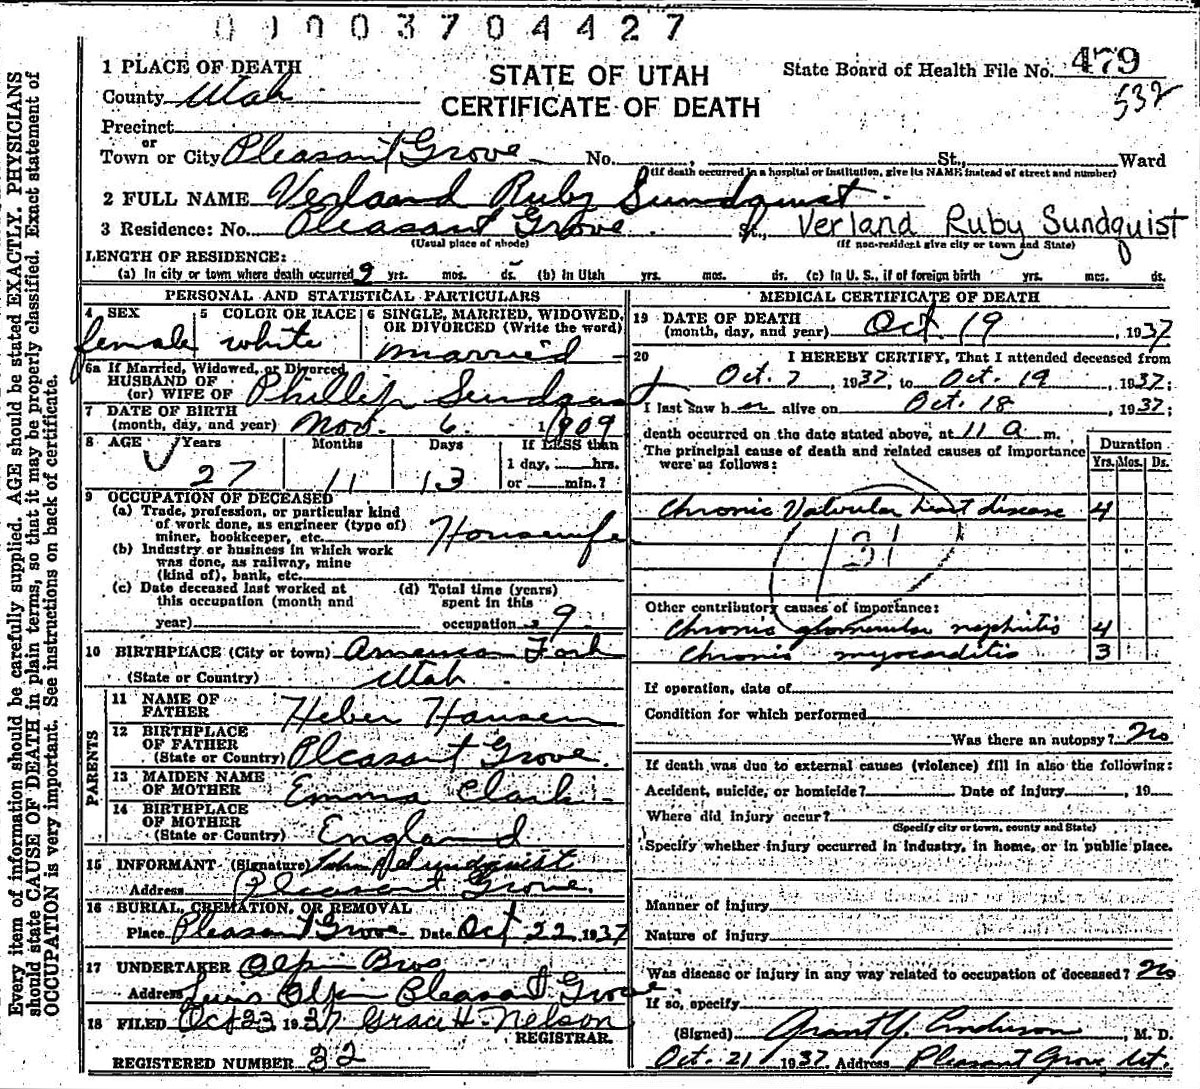 0 0 0 0 3 7 0 4 4 2 7
1 PLACE OF DEATH
STATE OF UTAH
State Board of Health File No. 479
County Utah
CERTIFICATE OF DEATH
532
Precinct
or
Town or City Pleasant Grove No. , St., Ward
(If death occurred in a hospital or institution, give its NAME instead of street and number)
2 FULL NAME Verland Ruby Sundquist
3 Residence: No. Pleasant Grove St., Verland Ruby Sundquist
(Usual place of abode) (If non-resident give city or town and State)
LENGTH OF RESIDENCE:
(a) In city or town where death occurred 9 yrs. mos. ds. (b) In Utah yrs. mos. ds. (c) In U. S., if of foreign birth yrs. mos. ds.
PERSONAL AND STATISTICAL PARTICULARS
4 SEX 5 COLOR OR RACE 6 SINGLE, MARRIED, WIDOWED, OR DIVORCED (Write the word)
female white married
6a If Married, Widowed, or Divorced
HUSBAND OF
(or) WIFE OF Phillip
7 DATE OF BIRTH
(month, day, and year) Nov. 6 1909
8 AGE Years Months Days If LESS than
27 11 13 1 day, hrs.
or min.?
9 OCCUPATION OF DECEASED
(a) Trade, profession, or particular kind
of work done, as engineer (type of)
miner, bookkeeper, etc. Housewife
(b) Industry or business in which work
was done, as railway, mine
(kind of), bank, etc.
(c) Date deceased last worked at
this occupation (month and
year)
(d) Total time (years)
spent in this
occupation 9
10 BIRTHPLACE (City or town) American Fork
(State or Country) Utah
PARENTS
11 NAME OF
FATHER Heber Hansen
12 BIRTHPLACE
OF FATHER
(State or Country) Pleasant Grove.
13 MAIDEN NAME
OF MOTHER Emma Clark
14 BIRTHPLACE
OF MOTHER
(State or Country) England
15 INFORMANT (Signature) Sundquist
Address Pleasant Grove.
16 BURIAL, CREMATION, OR REMOVAL
Place Pleasant Grove Date Oct 22, 1937
17 UNDERTAKER Olpin Bros
Address Olpin Pleasant Grove
18 FILED Oct 23 1937 Grace H. Nelson
REGISTRAR.
REGISTERED NUMBER 32
MEDICAL CERTIFICATE OF DEATH
19 DATE OF DEATH
(month, day, and year) Oct. 19, 1937
20 I HEREBY CERTIFY, That I attended deceased from
Oct. 7, 1937, to Oct. 19, 1937;
I last saw her alive on Oct. 18, 1937;
death occurred on the date stated above, at 11 a m.
The principal cause of death and related causes of importance
were as follows:
Duration
Yrs. Mos. Ds.
Chronic Valvular heart disease 4
131
Other contributory causes of importance:
Chronic glomerular nephritis 4
Chronic myocarditis 3
If operation, date of
Condition for which performed
Was there an autopsy? No
If death was due to external causes (violence) fill in also the following:
Accident, suicide, or homicide? Date of injury , 19
Where did injury occur?
(Specify city or town, county and State)
Specify whether injury occurred in industry, in home, or in public place.
Manner of injury
Nature of injury
Was disease or injury in any way related to occupation of deceased? No
If so, specify
(Signed) Grant Y. Anderson, M. D.
Oct. 21 1937 Address Pleasant Grove, Ut.
Every item of information should be carefully supplied. AGE should be stated EXACTLY. PHYSICIANS
should state CAUSE OF DEATH in plain terms, so that it may be properly classified. Exact statement of
OCCUPATION is very important. See instructions on back of certificate.